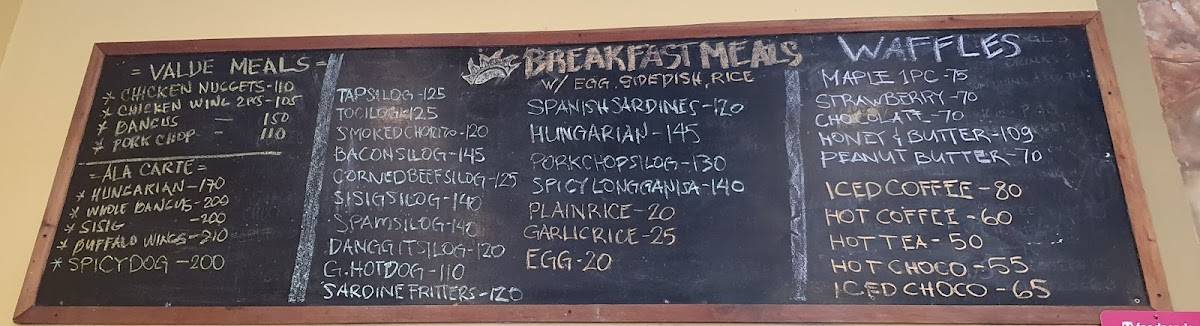 = VALUE MEALS =
* CHICKEN NUGGETS-110
* CHICKEN WING 2PCS-105
* BANGUS - 150
* PORK CHOP - 110
= ALA CARTE =
* HUNGARIAN-170
* WHOLE BANGUS-200
* SISIG -200
* BUFFALO WINGS-210
* SPICY DOG -200
BREAKFAST MEALS
W/ EGG, SIDEDISH, RICE
TAPSILOG-125
TOCILOG-125
SMOKED CHORIZO-120
BACONSILOG-145
CORNEDBEEFSILOG-125
SISIGSILOG-140
SPAMSILOG-140
DANGGITSILOG-120
G.HOTDOG-110
SARDINE FRITTERS-120
SPANISH SARDINES-120
HUNGARIAN-145
PORKCHOPSILOG-130
SPICY LONGGANISA-140
PLAIN RICE-20
GARLIC RICE-25
EGG-20
WAFFLES
MAPLE 1PC-75
STRAWBERRY-70
CHOCOLATE-70
HONEY & BUTTER-109
PEANUT BUTTER-70
ICED COFFEE-80
HOT COFFEE-60
HOT TEA-50
HOT CHOCO-55
ICED CHOCO-65